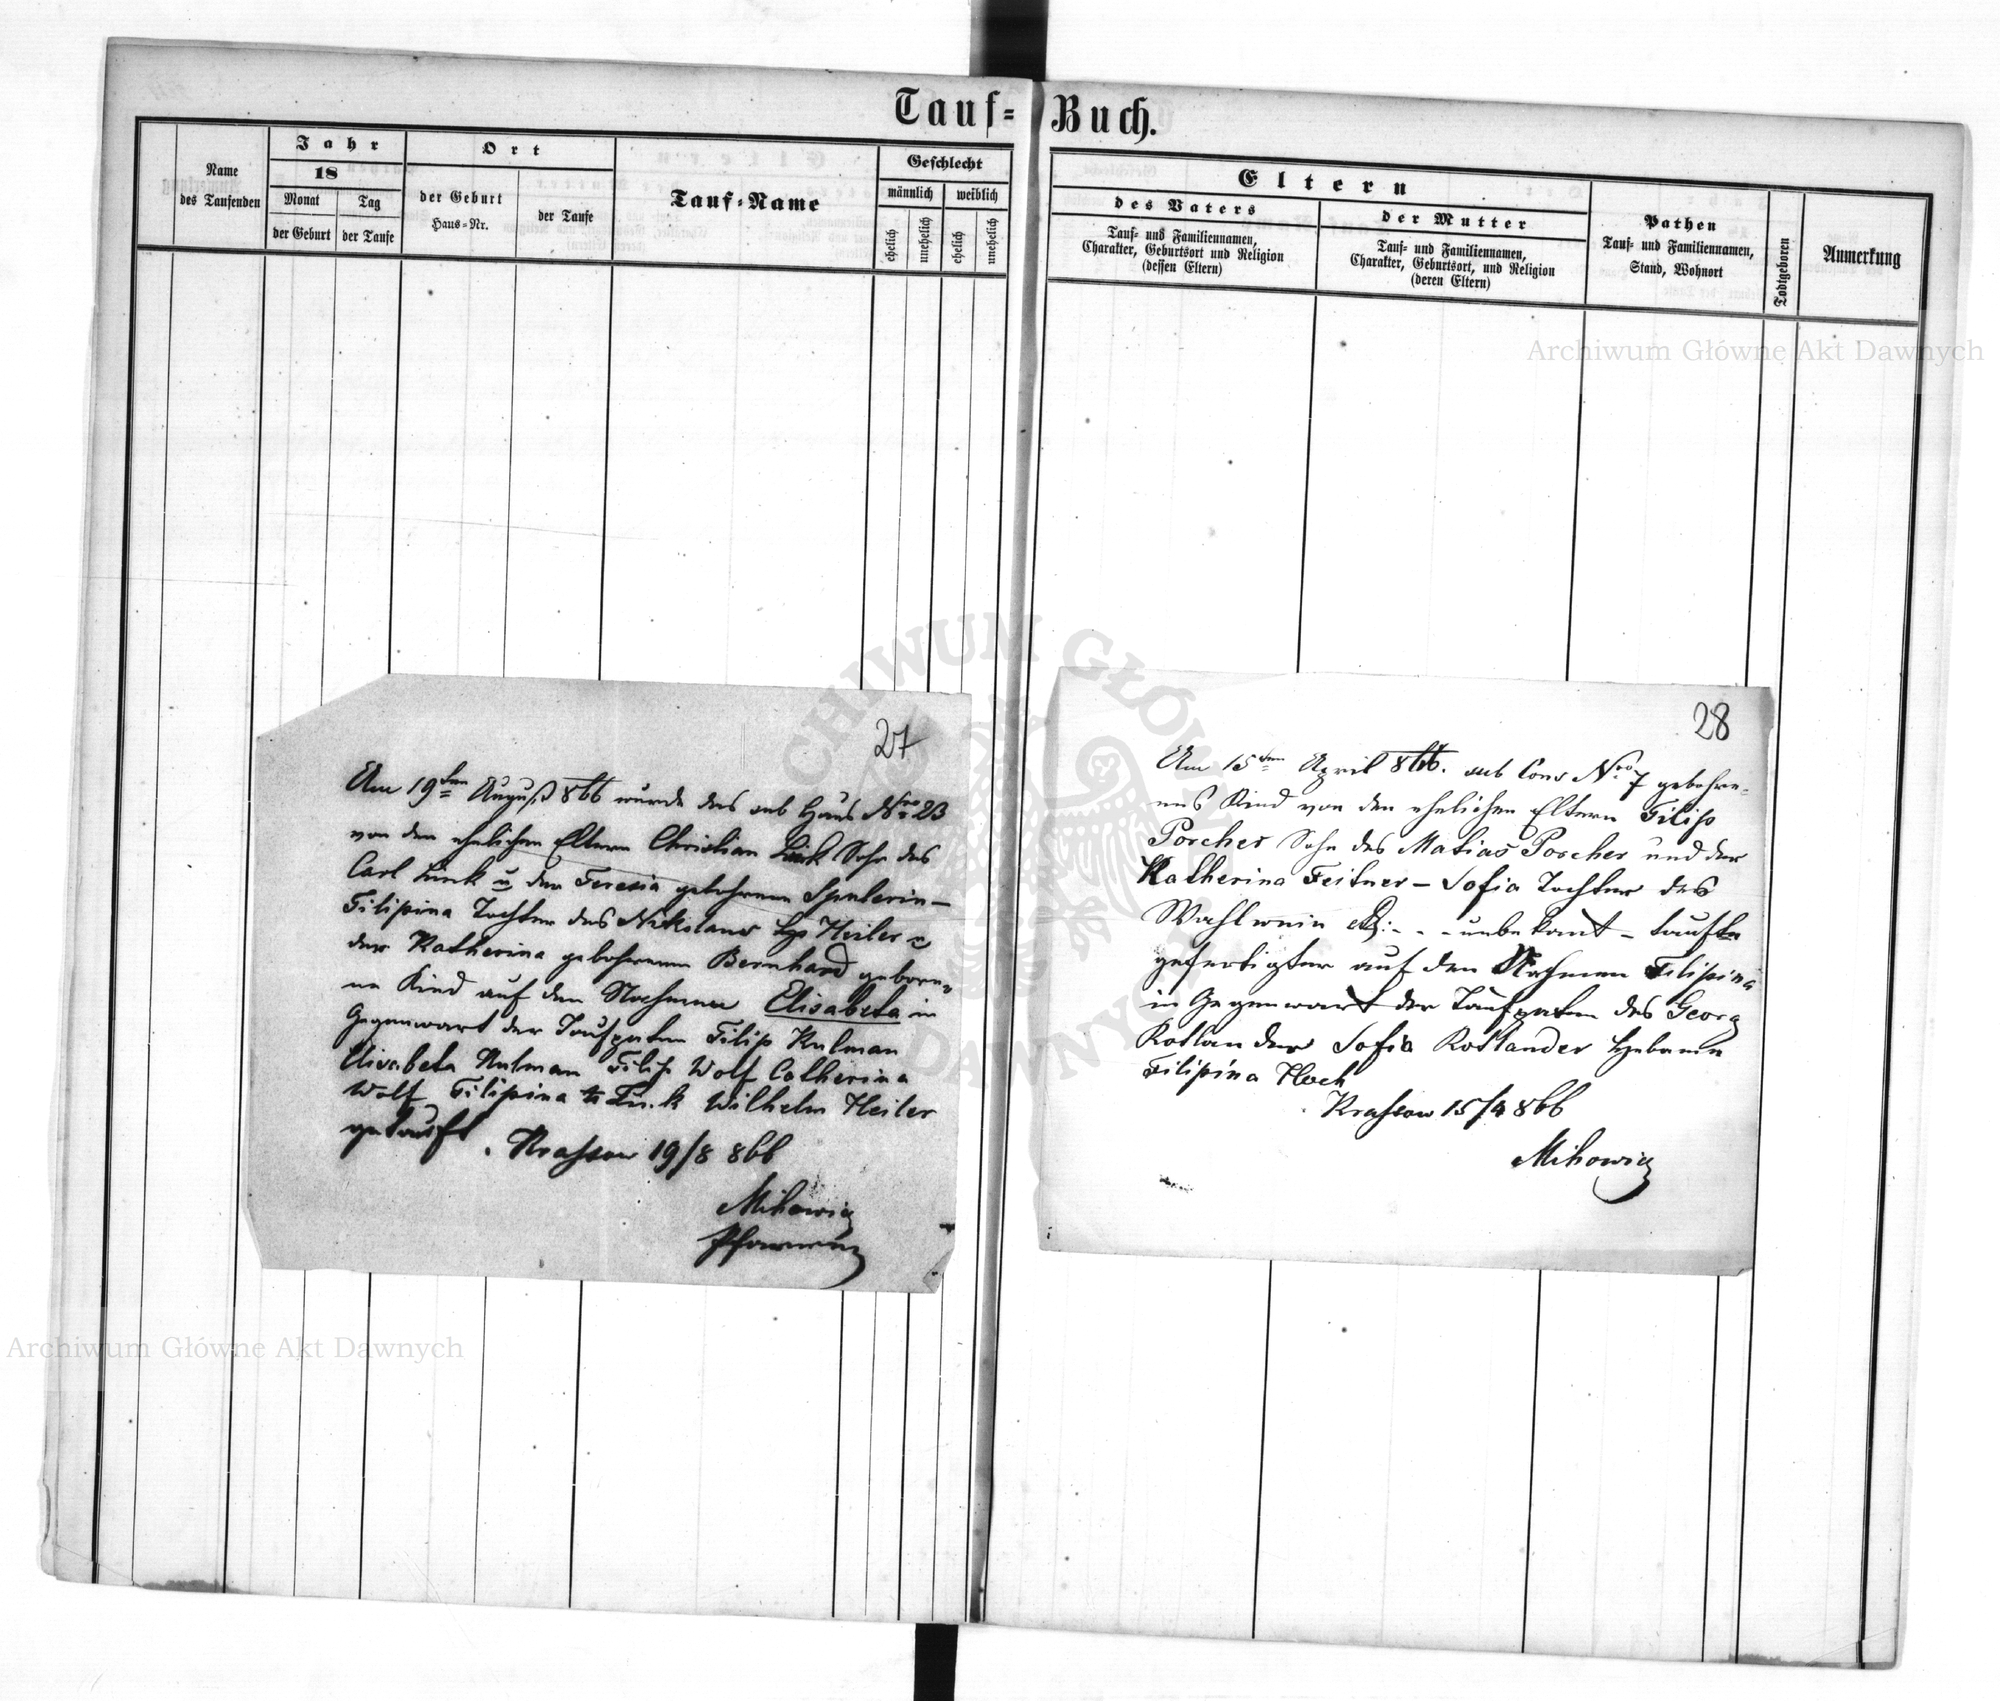 Tauf-Buch.
Name des Taufenden
Jahr
18
Monat
Tag
der Geburt
der Taufe
Ort
der Geburt
Haus-Nr.
der Taufe
Tauf-Name
Geschlecht
männlich
weiblich
ehelich
unehelich
ehelich
unehelich
Eltern
des Vaters
Tauf- und Familiennamen,
Charakter, Geburtsort und Religion
(dessen Eltern)
der Mutter
Tauf- und Familiennamen,
Charakter, Geburtsort, und Religion
(deren Eltern)
Pathen
Tauf- und Familiennamen,
Stand, Wohnort
Todtgeboren
Anmerkung
27
Am 19ten August 866 wurde das sub Haus Nro 23
von den ehelichen Eltern Christian Link Sohn des
Carl Link u der Teresia gebohrenen
Filipina Tochter des Nikolaus Heiler u
der Katherina gebohrenen Bernhard gebore-
ne Kind auf den Nahmen Elisabeta in
Gegenwart der Taufpaten Filip Kulman
Elisabeta Kulman Filip Wolf Catherina
Wolf Filipina Wilhelm Heiler
getauft. Krassow 19/8 866
Mihowicz
Pfarrer
28
Am 15ten April 866. sub Cons Nro 7 gebohre-
nes Kind von den ehelichen Eltern Filip
Porcher Sohn des Matias Porcher und der
Katherina Feitner - Sofia Tochter des
unbekant - taufte
gefertigter auf den Nahmen Filipina
in Gegenwart der Taufpaten des Georg
Kotlander Sofia Kotlander Hebame
Filipina Hoch
Krassow 15/4 866
Mihowicz
Archiwum Główne Akt Dawnych
Archiwum Główne Akt Dawnych
ARCHIWUM GŁÓWNE AKT DAWNYCH